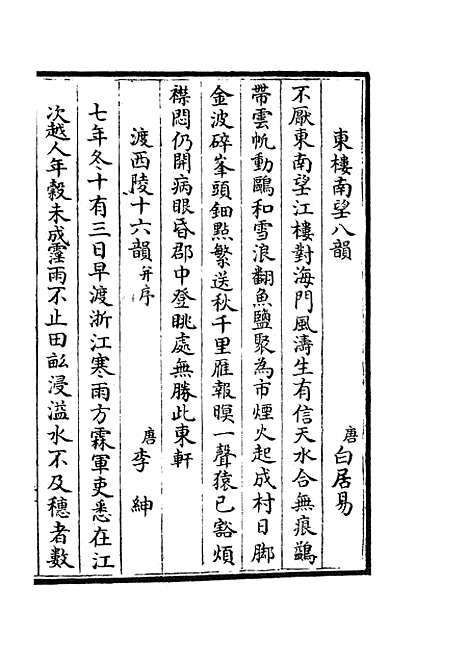 東樓南望八韻 唐 白居易
不厭東南望江樓對海門風濤生有信天水合無痕鷁
帶雲帆動鷗和雪浪翻魚鹽聚為市煙火起成村日脚
金波碎峯頭鈿點繁送秋千里雁報暝一聲猿已豁煩
襟悶仍開病眼昏郡中登眺處無勝此東軒
渡西陵十六韻并序 唐 李紳
七年冬十有三日早渡浙江寒雨方霖軍吏悉在江
次越人年穀未成霪雨不止田畝浸溢水不及穗者數